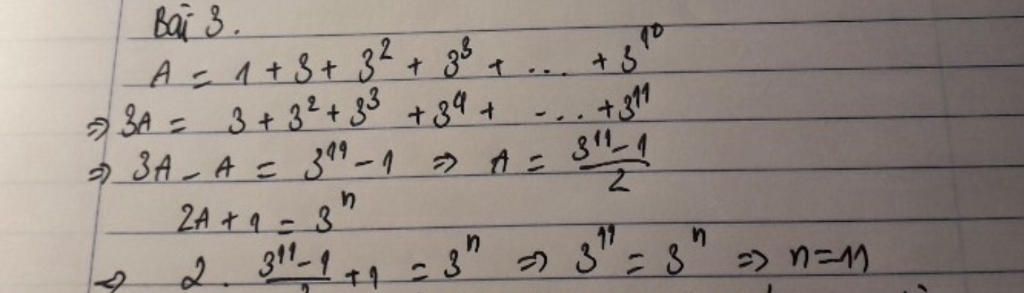 Bài 3.
A = 1 + 3 + 3² + 3³ + ... + 3¹⁰
⇒ 3A = 3 + 3² + 3³ + 3⁴ + ... + 3¹¹
⇒ 3A - A = 3¹¹ - 1 ⇒ A = (3¹¹ - 1)/2
2A + 1 = 3ⁿ
⇒ 2 . (3¹¹ - 1)/2 + 1 = 3ⁿ ⇒ 3¹¹ = 3ⁿ ⇒ n = 11